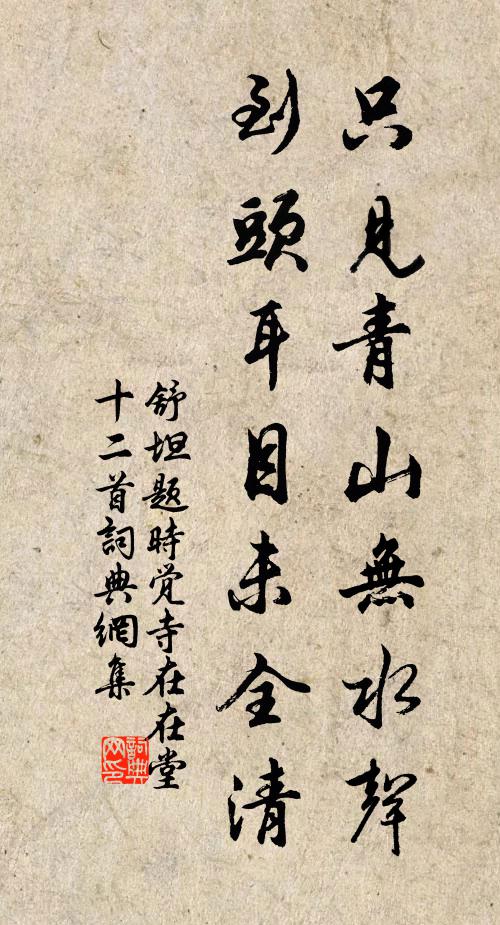 只見青山無水聲
到頭耳目未全清
舒坦題時觉寺在在堂
十二首詞典網集
詞典网印